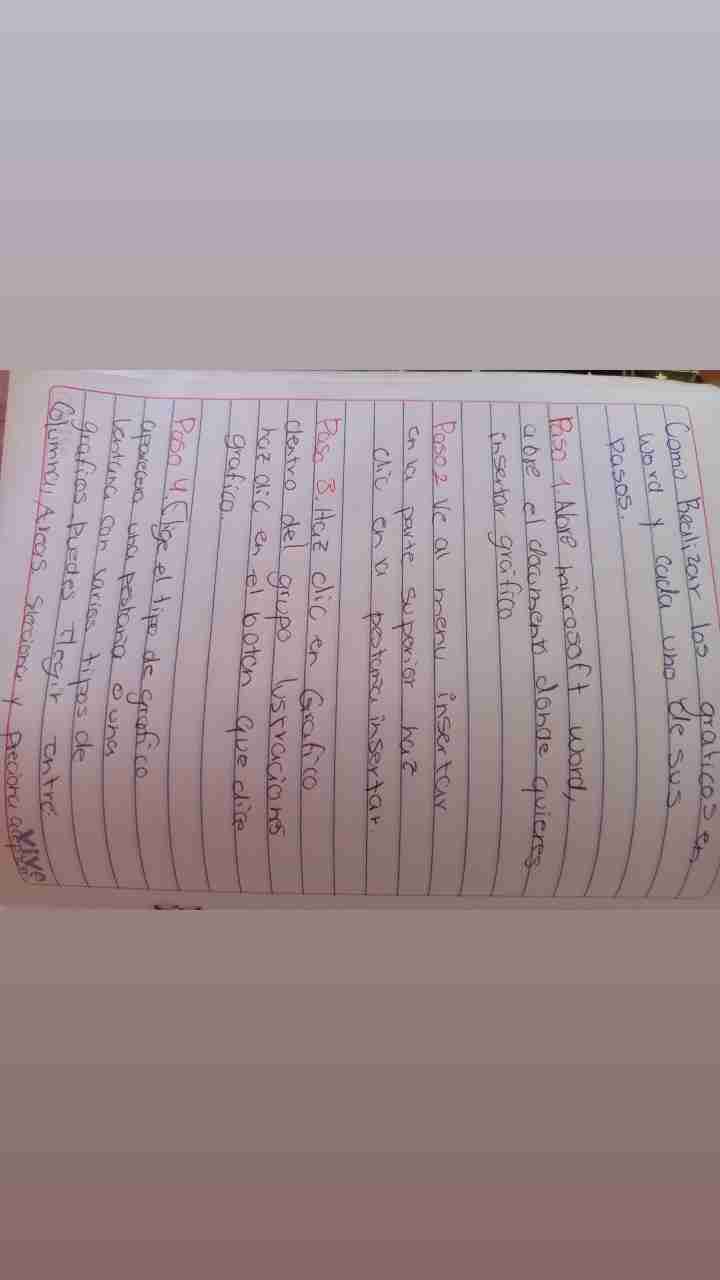 Como Realizar los graficos en
word y cada uno de sus
pasos.
Paso 1. Abre microsoft word,
abre el documento donde quieres
insertar gráfico
Paso 2 Ve al menu insertar
en la parte superior haz
clic en la pestaña insertar.
Paso 3. Haz clic en Grafico
dentro del grupo lustraciones
haz clic en el boton que dice
grafico.
Paso 4. Elige el tipo de grafico
aparecera una pestaña o una
bentana con varios tipos de
graficos Puedes Elegir entre
Columna, Areas seleciona y preciona aceptar
VIVE